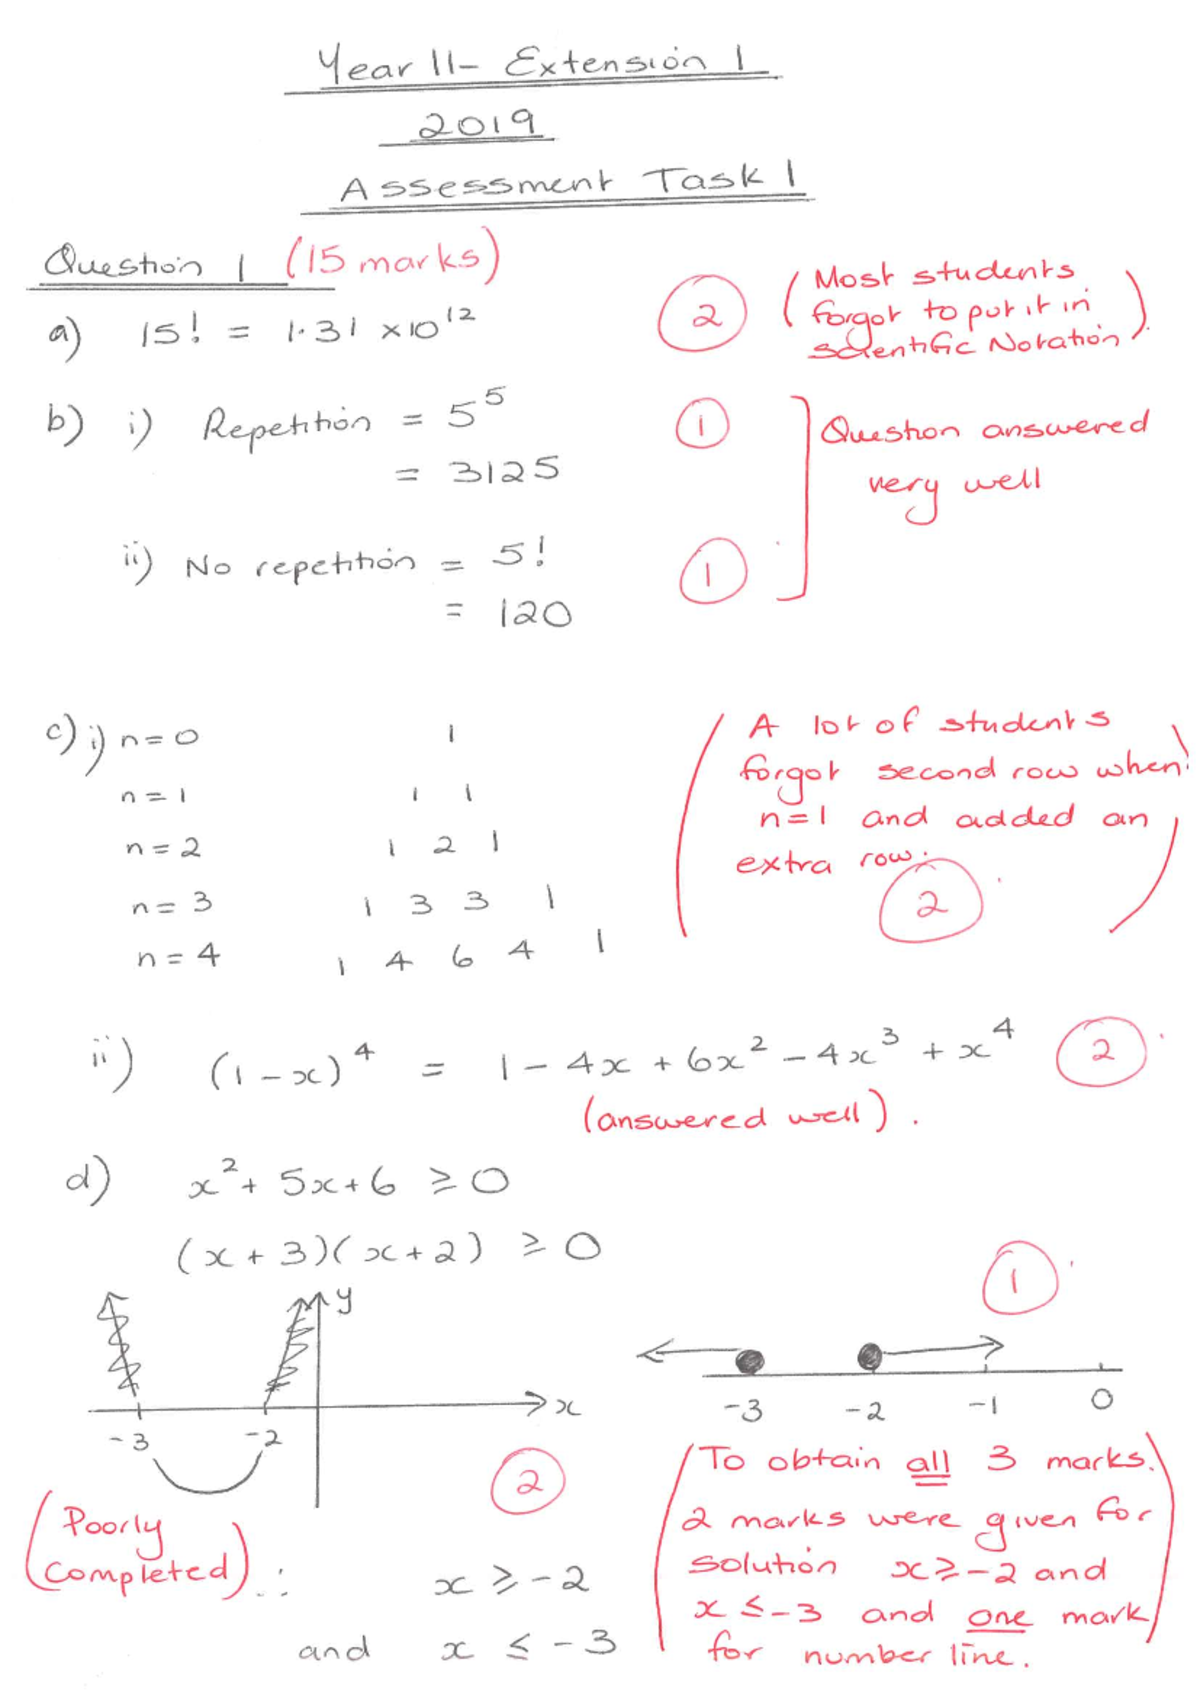 Year 11- Extension 1
2019
Assessment Task 1
Question 1 (15 marks)
a) 15! = 1.31 x10¹² 2 (Most students
forgot to put it in
Scientific Notation)
b) i) Repetition = 5⁵ 1 Question answered
= 3125 very well
ii) No repetition = 5! 1
= 120
c) i) n=0 1 (A lot of students
forgot second row when
n=1 1 1 n=1 and added an
n=2 1 2 1 extra row.)
n=3 1 3 3 1 2
n=4 1 4 6 4 1
ii) (1-x)⁴ = 1-4x+6x²-4x³+x⁴ 2
(answered well).
d) x²+5x+6 ≥0
(x+3)(x+2) ≥ 0
1
y
x
-3 -2
-3 -2 -1 0
2
(To obtain all 3 marks.
2 marks were given for
solution x≥-2 and
x≤-3 and one mark
for number line.)
(Poorly
completed) ∴ x≥-2
and x≤-3